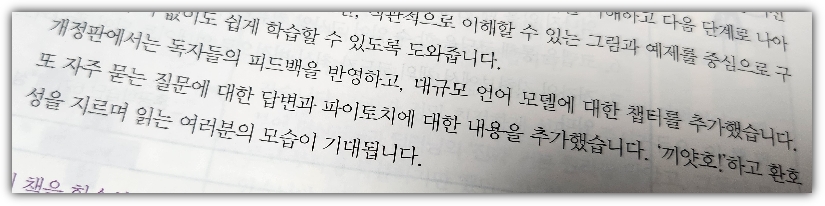 이해하고 다음 단계로 나아
없이도 쉽게 학습할 수 있도록 도와줍니다. 직관적으로 이해할 수 있는 그림과 예제를 중심으로 구
개정판에서는 독자들의 피드백을 반영하고, 대규모 언어 모델에 대한 챕터를 추가했습니다.
또 자주 묻는 질문에 대한 답변과 파이토치에 대한 내용을 추가했습니다. '끼얏호!'하고 환호
성을 지르며 읽는 여러분의 모습이 기대됩니다.
책은